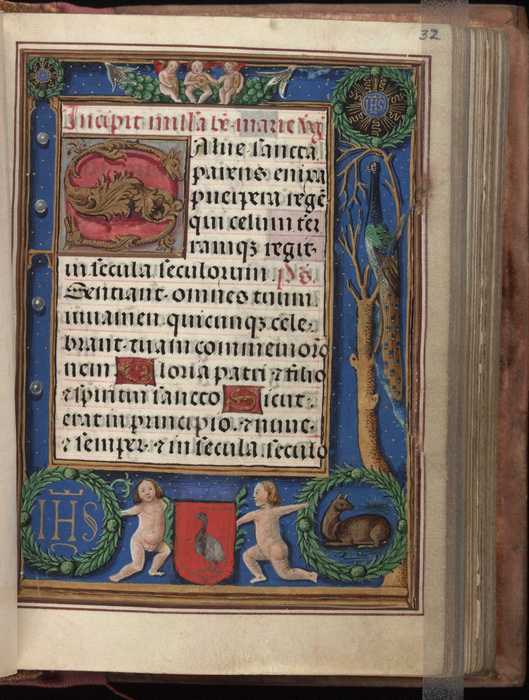 32
IHS
Incipit missa bē marie v̄g
Salue sancta
parens enixa
puerpera regē
qui celum ter
ramqȝ regit
in secula seculorum p̄s
Sentiant omnes tuum
iuuamen quicunqȝ cele
brant tuam commemorō
nem Gloria patri ⁊ filio
⁊ spiritui sancto Sicut
erat in principio ⁊ nunc
⁊ semper ⁊ in secula seculo
IHS